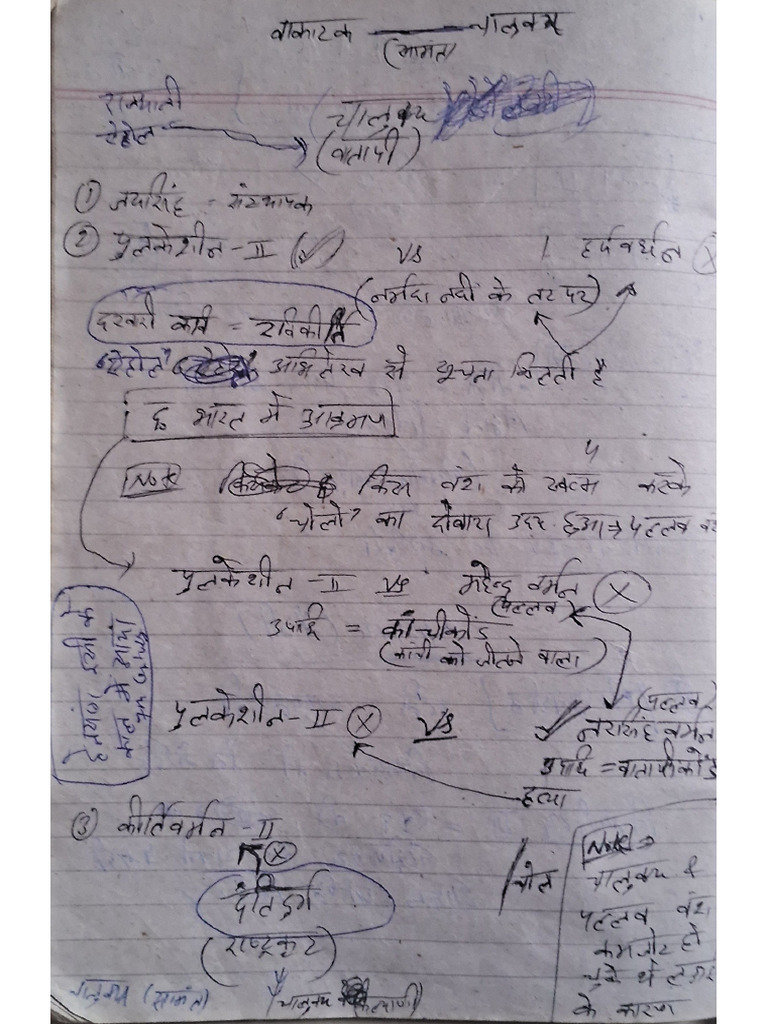 वाकाटक — चालुक्य
(सामंत)
राजधानी
ऐहोल
चालुक्य
(वातापी)
① जयसिंह = संस्थापक
② पुलकेशीन-II (✓) VS हर्षवर्धन (X)
(नर्मदा नदी के तट पर)
दरबारी कवि = रविकीर्ति
"ऐहोल" अभिलेख से सूचना मिलती है
द भारत में आक्रमण
Note किस वंश को खत्म करके
"चोलो" का दोबारा उदय हुआ → पल्लव वंश
पुलकेशीन-II VS महेन्द्र वर्मन (X)
(पल्लव)
उपाधि = कांचीकोंड
(कांची को जीतने वाला)
हेनसांग इसी के
काल में आया
(पल्लव)
पुलकेशीन-II (X) VS ✓ नरसिंह वर्मन
उपाधि = वातापीकोंड
हत्या
③ कीर्तिवर्मन-II
(X)
दंतिदुर्ग
(राष्ट्रकूट)
चालुक्य (सामंत)
चालुक्य कल्याणी
चोल
Note ⇒
चालुक्य &
पल्लव वंश
कमजोर हो
चुके थे
के कारण